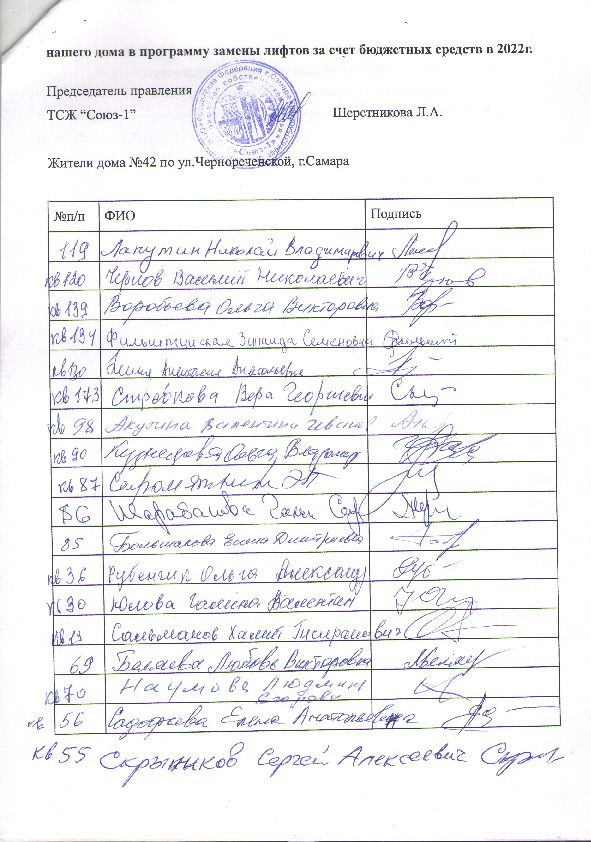 нашего дома в программу замены лифтов за счет бюджетных средств в 2022г.
Председатель правления
ТСЖ “Союз-1” Шерстникова Л.А.
Жители дома №42 по ул.Чернореченской, г.Самара
№п/п ФИО Подпись
119 Лапутин Николай Владимирович
кв 120 Чернов Василий Николаевич
кв 139 Воробьева Ольга Викторовна
кв 134 Зинаида Семеновна
кв 130 Анатольевич
кв 173 Вера Георгиевн
кв 98 Акулина Валентина
кв 90 Кузнецова Ольга Владимир
кв 87
86 Шарабанова
85 Большакова Елена Дмитриевна
кв 36 Рубенчик Ольга Александр
кв 30 Юлова Галина Валентин
кв 19 Сальманов Халит
69 Балаева Любовь Викторовна
кв 70 Наумова Людмила
кв 56 Елена Анатольевна
кв 55 Скрыпников Сергей Алексеевич